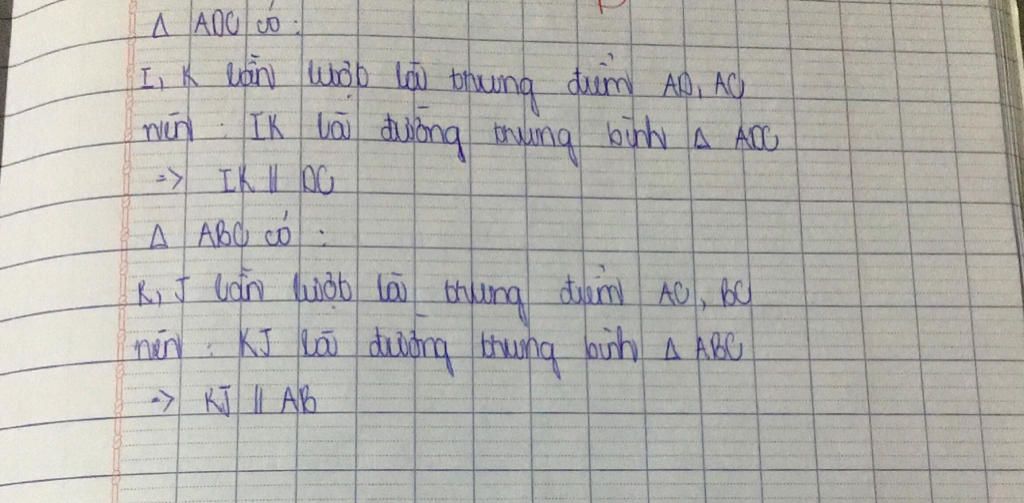 Δ ADC có:
I, K lần lượt là trung điểm AD, AC
nên: IK là đường trung bình Δ ADC
=> IK // DC
Δ ABC có:
K, J lần lượt là trung điểm AC, BC
nên: KJ là đường trung bình Δ ABC
=> KJ // AB